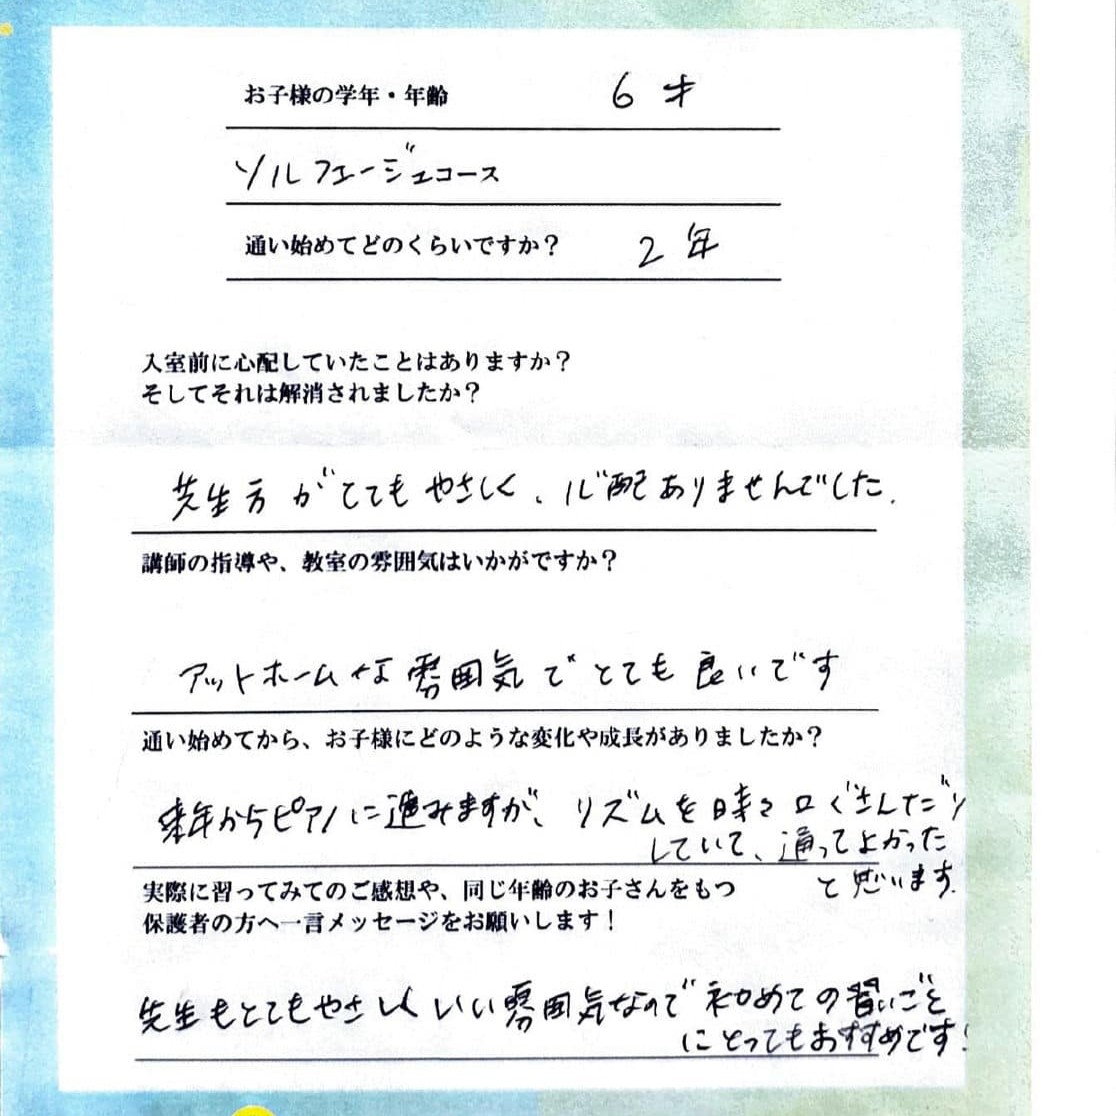 お子様の学年・年齢 6才
ソルフェージュコース
通い始めてどのくらいですか? 2年
入室前に心配していたことはありますか?
そしてそれは解消されましたか?
先生方がとてもやさしく、心配ありませんでした.
講師の指導や、教室の雰囲気はいかがですか?
アットホームな雰囲気でとても良いです
通い始めてから、お子様にどのような変化や成長がありましたか?
来年からピアノに進みますが、リズムを時々口ぐさんだり
していて、通ってよかった
と思います.
実際に習ってみてのご感想や、同じ年齢のお子さんをもつ
保護者の方へ一言メッセージをお願いします!
先生もとてもやさしくいい雰囲気なので初めての習いごと
にとってもおすすめです!